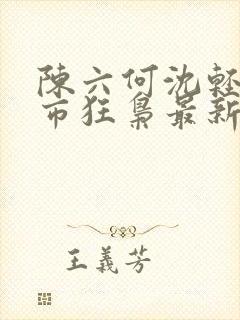 陳六何沈軽
市狂梟最新
王義芳